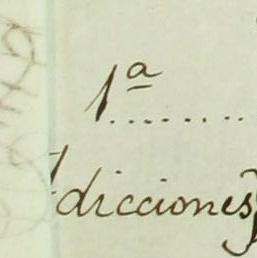 1ª ........
dicciones